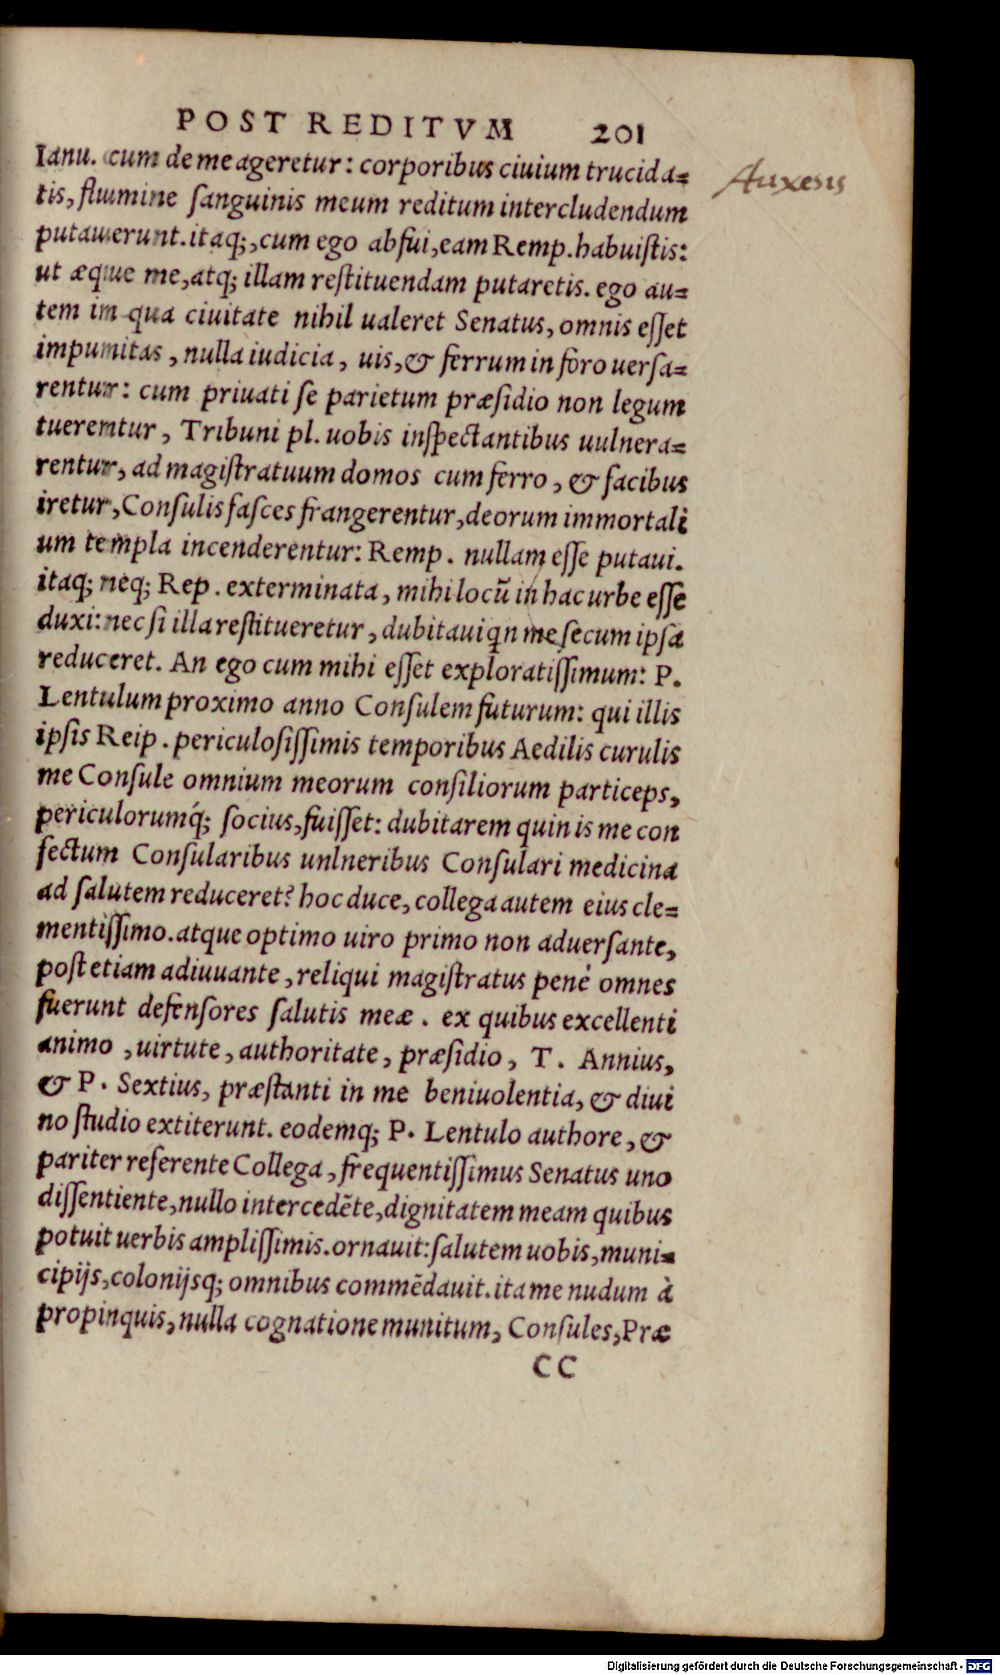 POST REDITVM 201
Ianu. cum de me ageretur: corporibus ciuium trucida=
Auxesis
tis, flumine sanguinis meum reditum intercludendum
putauerunt. itaq;, cum ego abfui, eam Remp. habuistis:
ut æque me, atq; illam restituendam putaretis. ego au=
tem in qua ciuitate nihil ualeret Senatus, omnis esset
impunitas, nulla iudicia, uis, & ferrum in foro uersa=
rentur: cum priuati se parietum præsidio non legum
tuerentur, Tribuni pl. uobis inspectantibus uulnera=
rentur, ad magistratuum domos cum ferro, & facibus
iretur, Consulis fasces frangerentur, deorum immortali
um templa incenderentur: Remp. nullam esse putaui.
itaq; neq; Rep. exterminata, mihi locũ in hac urbe esse
duxi: nec si illa restitueretur, dubitaui qn me secum ipsa
reduceret. An ego cum mihi esset exploratissimum: P.
Lentulum proximo anno Consulem futurum: qui illis
ipsis Reip. periculosissimis temporibus Aedilis curulis
me Consule omnium meorum consiliorum particeps,
periculorumq́; socius, fuisset: dubitarem quin is me con
fectum Consularibus unlneribus Consulari medicina
ad salutem reduceret? hoc duce, collega autem eius cle=
mentissimo. atque optimo uiro primo non aduersante,
post etiam adiuuante, reliqui magistratus penè omnes
fuerunt defensores salutis meæ. ex quibus excellenti
animo, uirtute, authoritate, præsidio, T. Annius,
& P. Sextius, præstanti in me beniuolentia, & diui
no studio extiterunt. eodemq; P. Lentulo authore, &
pariter referente Collega, frequentissimus Senatus uno
dissentiente, nullo intercedẽte, dignitatem meam quibus
potuit uerbis amplissimis. ornauit: salutem uobis, muni=
cipijs, colonijsq; omnibus commẽdauit. ita me nudum à
propinquis, nulla cognatione munitum, Consules, Præ
CC
Digitalisierung gefördert durch die Deutsche Forschungsgemeinschaft - DFG